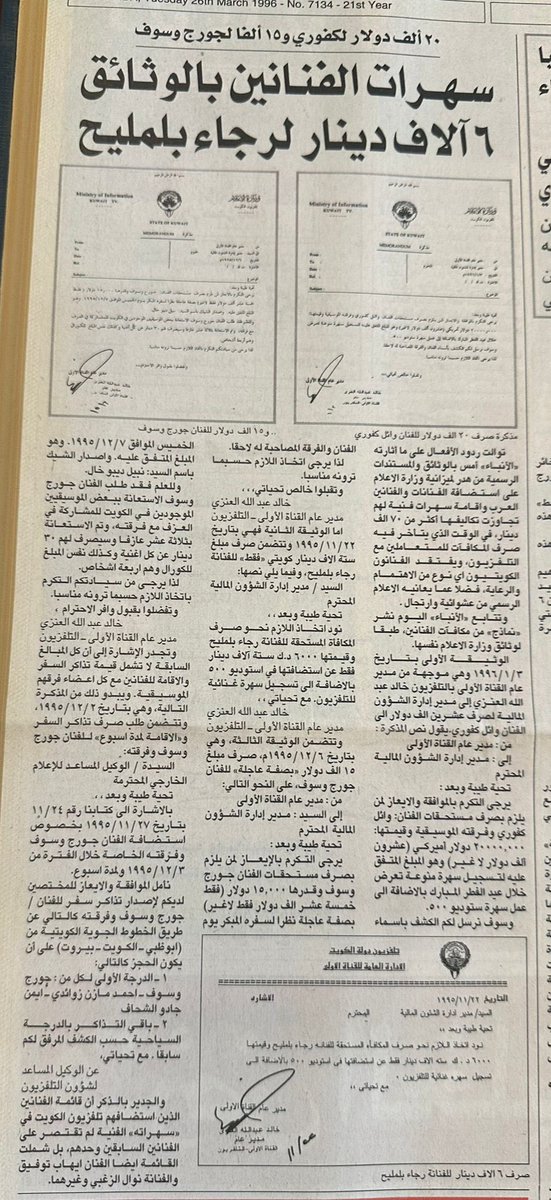 Tuesday 26th March 1996 - No. 7134 - 21st Year
٢٠ ألف دولار لكفوري و١٥ ألفا لجورج وسوف
سهرات الفنانين بالوثائق
٦ آلاف دينار لرجاء بلمليح
Ministry of Information
KUWAIT TV.
STATE OF KUWAIT
MEMORANDUM
Ministry of Information
KUWAIT TV.
STATE OF KUWAIT
MEMORANDUM
مذكرة صرف ٢٠ الف دولار للفنان وائل كفوري
.. و١٥ الف دولار للفنان جورج وسوف
توالت ردود الأفعال على ما أثارته
«الأنباء» أمس بالوثائق والمستندات
الرسمية من هدر لميزانية وزارة الاعلام
على استضافة الفنانات والفنانين
العرب واقامة سهرات فنية لهم
تجاوزت تكاليفها أكثر من ٧٠ الف
دينار، في الوقت الذي يتأخر فيه
صرف المكافآت للمتعاملين مع
التلفزيون، ويفتقد الفنانون
الكويتيون أي نوع من الاهتمام
والرعاية، فضلا عما يعانيه الاعلام
الرسمي من عشوائية وارتجال.
وتتابع «الأنباء» اليوم نشر
«نماذج» من مكافآت الفنانين، طبقا
لوثائق وزارة الاعلام نفسها.
الوثيقة الأولى بتاريخ
١٩٩٦/١/٣ وهي موجهة من مدير
عام القناة الأولى بالتلفزيون خالد عبد
الله العنزي إلى مدير إدارة الشؤون
المالية لصرف عشرين الف دولار الى
الفنان وائل كفوري، يقول نص المذكرة:
من: مدير عام القناة الأولى
إلى: مدير إدارة الشؤون المالية
المحترم
تحية طيبة وبعد:
يرجى التكرم بالموافقة والايعاز لمن
يلزم بصرف مستحقات الفنان: وائل
كفوري وفرقته الموسيقية وقيمتها:
٢٠٠٠٠,٠٠٠ دولار أميركي (عشرون
ألف دولار لا غير) وهو المبلغ المتفق
عليه لتسجيل سهرة منوعة تعرض
خلال عيد الفطر المبارك بالاضافة الى
عمل سهرة ستوديو ٥٠٠.
وسوف نرسل لكم الكشف باسماء
الفنان والفرقة المصاحبة له لاحقا.
لذا يرجى اتخاذ اللازم حسبما
ترونه مناسبا.
وتقبلوا خالص تحياتي،،،
خالد عبد الله العنزي
مدير عام القناة الأولى - التلفزيون
اما الوثيقة الثانية فهي بتاريخ
١٩٩٥/١١/٢٢ وتتضمن صرف مبلغ
ستة الاف دينار كويتي «فقط» للفنانة
رجاء بلمليح، وفيما يلي نصها:
السيد / مدير إدارة الشؤون المالية
المحترم
تحية طيبة وبعد،،
نود اتخاذ اللازم نحو صرف
المكافاة المستحقة للفنانة رجاء بلمليح
وقيمتها ٦٠٠٠ د.ك ستة آلاف دينار
فقط عن استضافتها في استوديو ٥٠٠
بالاضافة الى تسجيل سهرة غنائية
للتلفزيون. مع تحياتي،،
خالد عبد الله العنزي
مدير عام القناة الأولى - التلفزيون
وتتضمن الوثيقة الثالثة، وهي
بتاريخ ١٩٩٥/١٢/٦م، صرف مبلغ
١٥ الف دولار «بصفة عاجلة» للفنان
جورج وسوف، على النحو التالي:
من: مدير عام القناة الأولى
إلى السيد: مدير إدارة الشؤون
المالية المحترم
تحية طيبة وبعد:
يرجى التكرم بالإيعاز لمن يلزم
بصرف مستحقات الفنان جورج
وسوف وقدرها ١٥,٠٠٠ دولار (فقط
خمسة عشر الف دولار فقط لاغير)
بصفة عاجلة نظرا لسفره المبكر يوم
الخميس الموافق ١٩٩٥/١٢/٧. وهو
المبلغ المتفق عليه. واصدار الشيك
باسم السيد: نبيل ديبو خال.
وللعلم فقد طلب الفنان جورج
وسوف الاستعانة ببعض الموسيقيين
الموجودين في الكويت للمشاركة في
العزف مع فرقته، وتم الاستعانة
بثلاثة عشر عازفا وسيصرف لهم ٣٠
دينار عن كل اغنية وكذلك نفس المبلغ
للكورال وهم اربعة اشخاص.
لذا يرجى من سيادتكم التكرم
باتخاذ اللازم حسبما ترونه مناسبا.
وتفضلوا بقبول وافر الاحترام،
خالد عبد الله العنزي
مدير عام القناة الأولى - التلفزيون
وتجدر الإشارة إلى أن كل المبالغ
السابقة لا تشمل قيمة تذاكر السفر
والاقامة للفنانين مع كل اعضاء فرقهم
الموسيقية. ويبدو ذلك من المذكرة
التالية، وهي بتاريخ ١٩٩٥/١٢/٢،
وتتضمن طلب صرف تذاكر السفر
و«الاقامة لمدة اسبوع» للفنان جورج
وسوف وفرقته:
السيدة / الوكيل المساعد للإعلام
الخارجي المحترمة
تحية طيبة وبعد،،
بالاشارة الى كتابنا رقم ١١/٢٤
بتاريخ ١٩٩٥/١١/٢٧ بخصوص
استضافة الفنان جورج وسوف
وفرقته الخاصة خلال الفترة من
١٩٩٥/١٢/٣ ولمدة اسبوع.
نأمل الموافقة والايعاز للمختصين
لديكم لإصدار تذاكر سفر للفنان /
جورج وسوف وفرقته كالتالي عن
طريق الخطوط الجوية الكويتية من
(ابوظبي - الكويت - بيروت) على أن
يكون الحجز كالتالي:
١ - الدرجة الأولى لكل من: جورج
وسوف - احمد مازن زوائدي - ايمن
جادو الشحاف
٢ - باقي التذاكر بالدرجة
السياحية حسب الكشف المرفق لكم
سابقا. مع تحياتي،
عن الوكيل المساعد
لشؤون التلفزيون
والجدير بالذكر أن قائمة الفنانين
الذين استضافهم تلفزيون الكويت في
«سهراته» الفنية لم تقتصر على
الفنانين السابقين وحدهم، بل شملت
القائمة ايضا الفنان ايهاب توفيق
والفنانة نوال الزغبي وغيرهما.
تلفزيون دولة الكويت
الادارة العامة للقناة الاولى
التاريخ ١٩٩٥/١١/٢٢
الاشارة
السيد/ مدير ادارة الشئون المالية المحترم
تحية طيبة وبعد،،
نود اتخاذ اللازم نحو صرف المكافأه المستحقة للفنانه رجاء بلمليح وقيمتها
٦٠٠٠ د.ك سته الاف دينار فقط عن استضافتها في استوديو ٥٠٠ بالاضافة الى
تسجيل سهره غنائية للتلفزيون.
مع تحياتي،،
مدير عام القناة الأولى
خالد عبدالله العنزي
مدير عام
القناة الاولى - التلفزيون
صرف ٦ الاف دينار للفنانة رجاء بلمليح